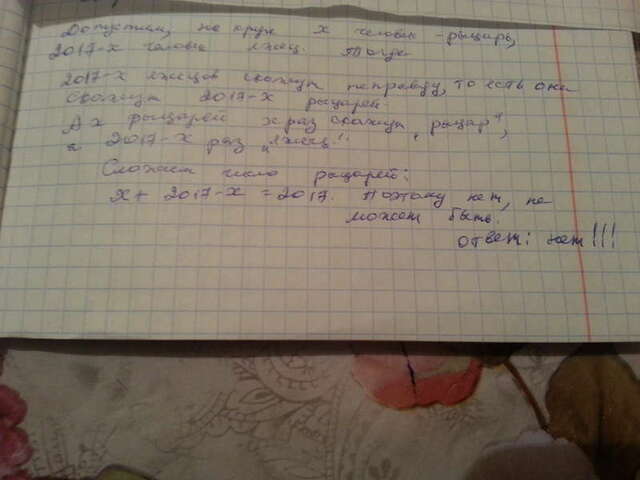 Допустим, на круж х человек - рыцарь,
2017-х человек лжец. Тогда
2017-х лжецов скажут неправду, то есть они
скажут 2017-х рыцарей
А х рыцарей х раз скажут „рыцарь",
а 2017-х раз „лжец".
Сложим число рыцарей:
х + 2017-х = 2017. Поэтому нет, не
может быть.
Ответ: нет!!!